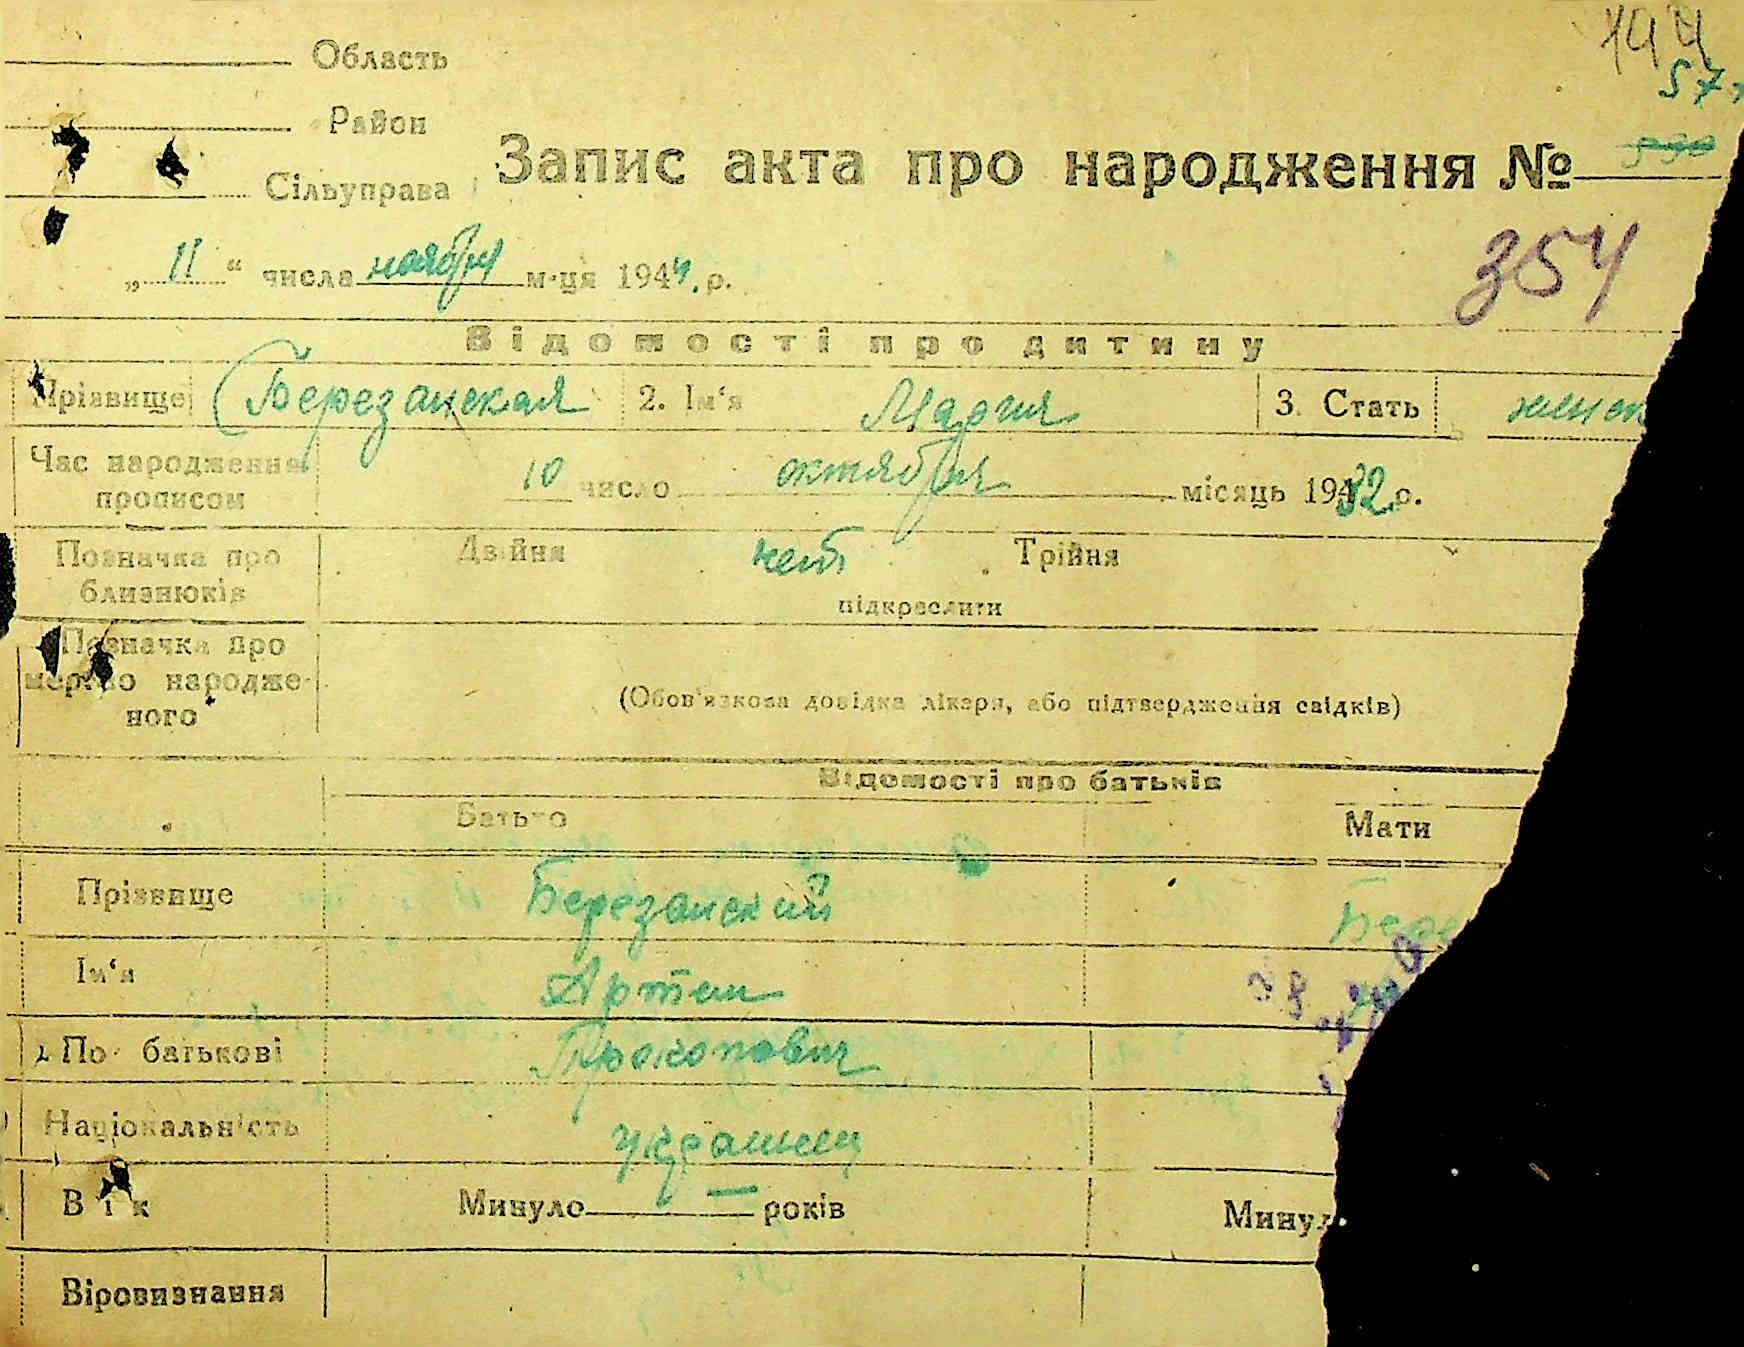 144
57
Область
Район
Сільуправа
Запис акта про народження №
354
„ 11 “ числа ноября м-ця 1944. р.
Відомості про дитину
Прізвище Березанская 2. Ім‘я Мария 3. Стать женск
Час народження прописом 10 число октября місяць 1932 р.
Позначка про близнюків Двійня нет Трійня
підкреслити
Позначка про мертво народженого
(Обов‘язкова довідка лікаря, або підтвердження свідків)
Відомості про батьків
Батько Мати
Прізвище Березанский Бере
Ім‘я Артем
По батькові Прокопович
Національність украинец
Вік Минуло — років Минул
Віровизнання